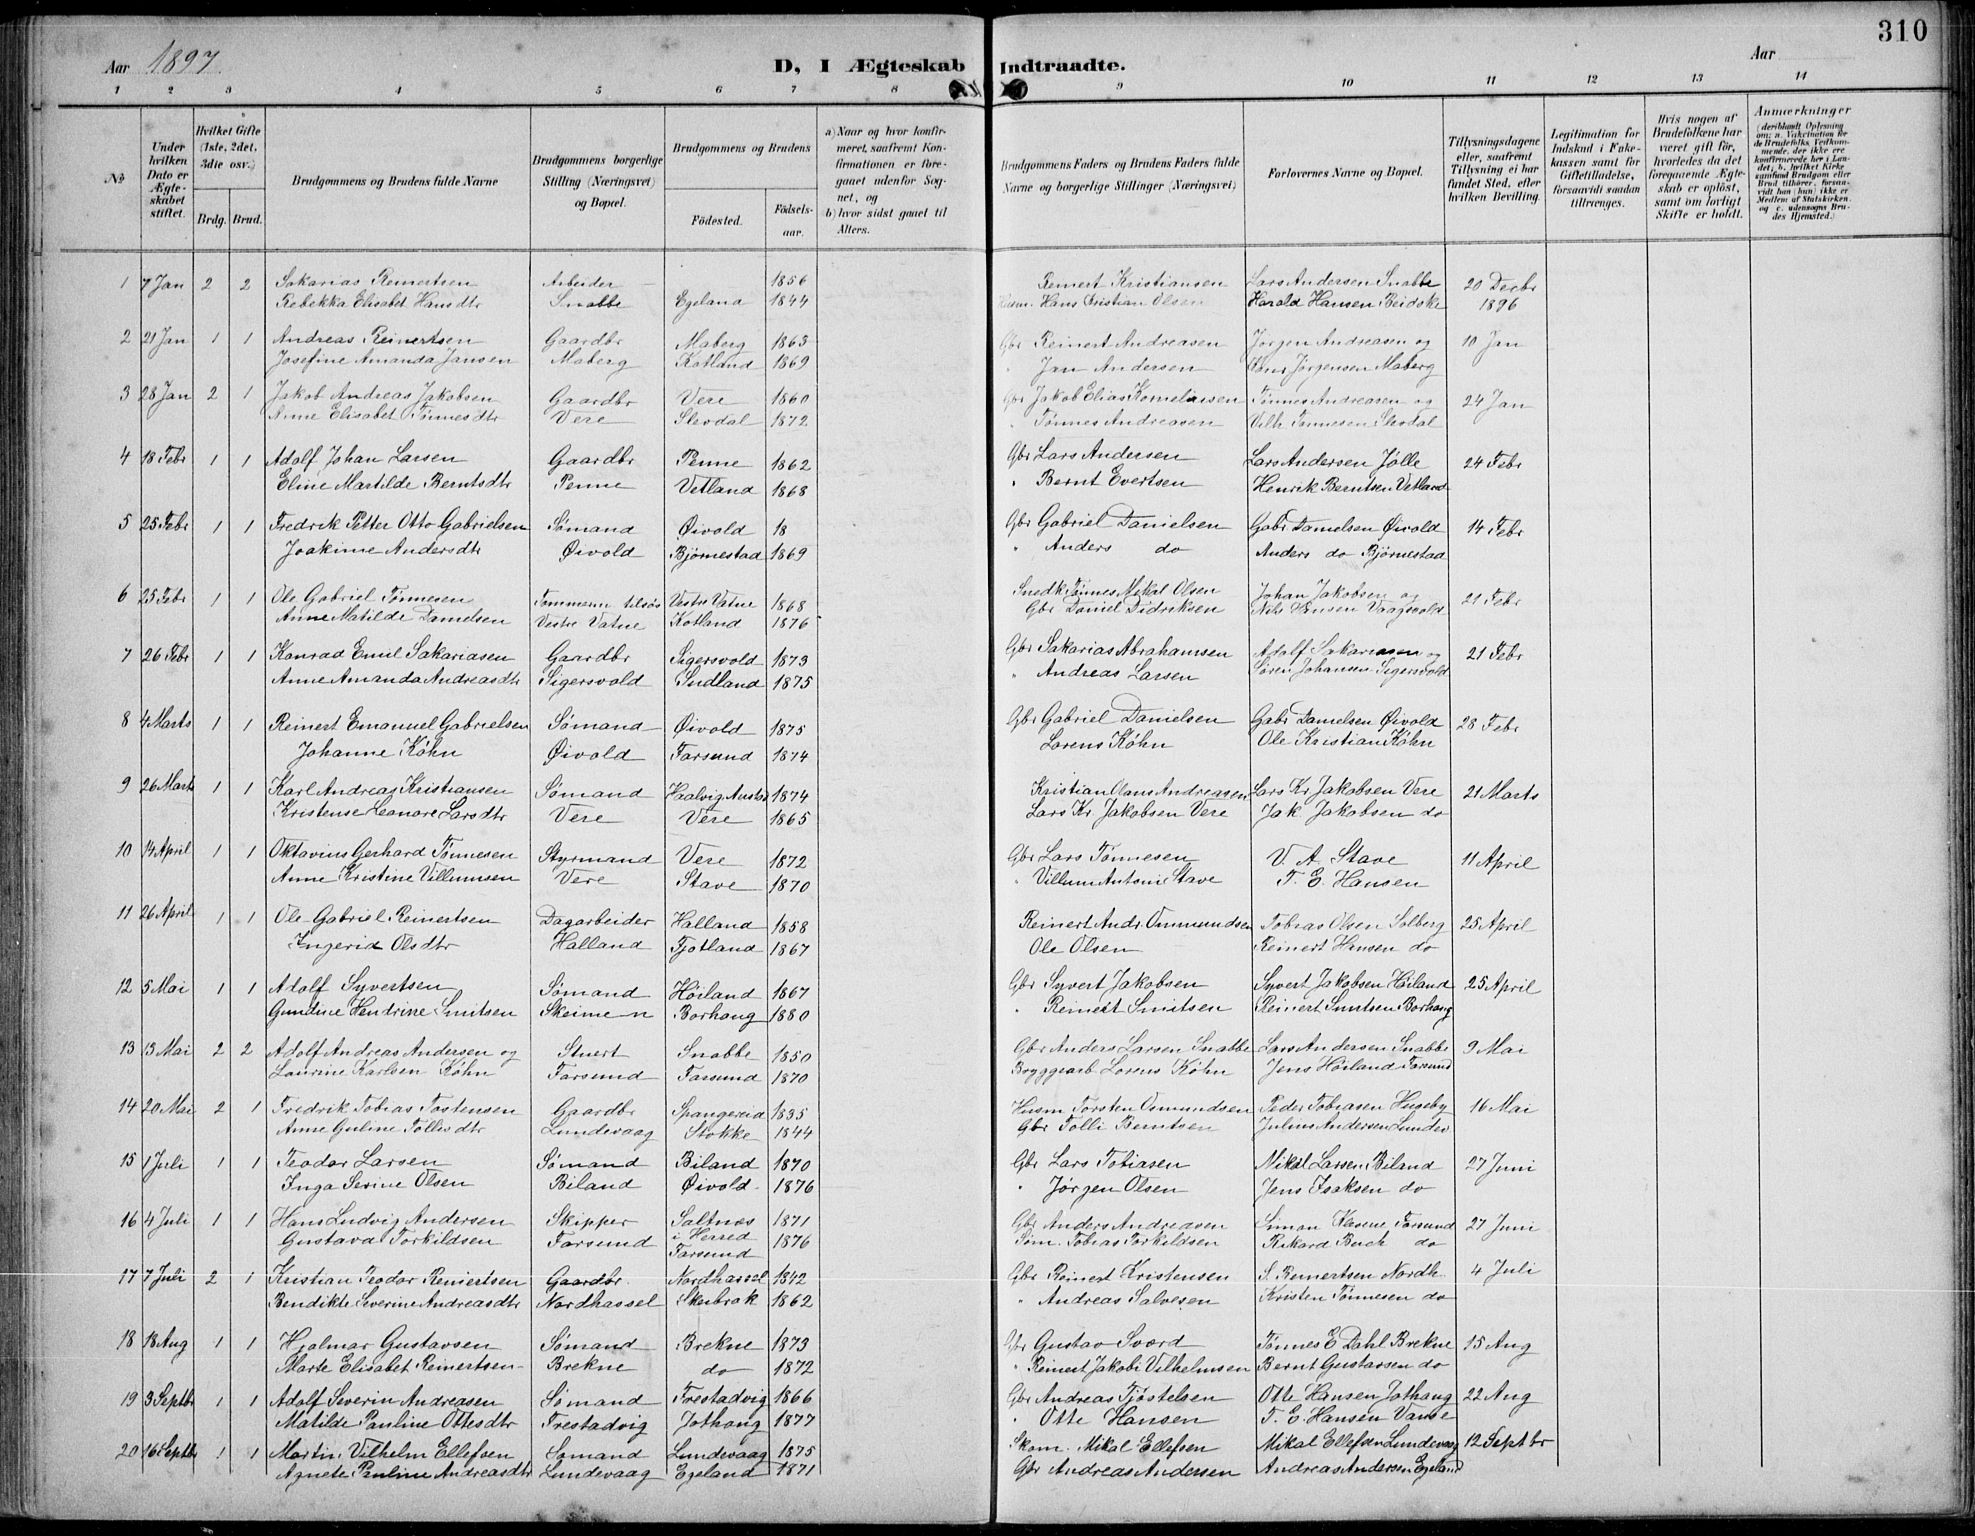 310
Aar 1897.
D, I Ægteskab Indtraadte.
Aar
1 2 3 4 5 6 7 8 9 10 11 12 13 14
No
Under hvilken Dato er Ægteskabet stiftet.
Hvilket Gifte (1ste, 2det, 3die osv.)
Brdg. Brud.
Brudgommens og Brudens fulde Navne
Brudgommens borgerlige Stilling (Næringsvei) og Bopæl.
Brudgommens og Brudens
Födested. Födselsaar.
a) Naar og hvor konfirmeret, saafremt Konfirmationen er foregaaet udenfor Sognet, og
b) hvor sidst gaaet til Alters.
Brudgommens Faders og Brudens Faders fulde Navne og borgerlige Stillinger (Næringsvei)
Forlovernes Navne og Bopæl.
Tillysningsdagene eller, saafremt Tillysning ei har fundet Sted, efter hvilken Bevilling.
Legitimation for Indskud i Enkekassen samt for Giftetilladelse, forsaavidt saadan tiltrænges.
Hvis nogen af Brudefolkene har været gift för, hvorledes da det foregaaende Ægteskab er oplöst, samt om lovligt Skifte er holdt.
Anmærkninger
1 7 Jan 2 2 Sakarias Reinertsen Arbeider 1856 Reinert Kristiansen Lars Andersen Snabbe 20 Decbr
Rebekka Elisabet Hansdtr Snabbe Egeland 1844 Hans Kristian Olsen Harald Hansen Beidske 1896
2 21 Jan 1 1 Andreas Reinertsen Gaardbr Maberg 1863 Gbr Reinert Andreasen Jørgen Andreasen og 10 Jan
Josefine Amanda Jansen Maberg Kotland 1869 " Jan Andersen Hans Jørgensen Maberg
3 28 Jan 2 1 Jakob Andreas Jakobsen Gaardbr Vere 1860 Gbr Jakob Elias Korneliusen Tønnes Andreasen og 24 Jan
Anne Elisabet Tønnesdtr Vere Slevdal 1872 " Tønnes Andreasen Vilh Tønnesen Slevdal
4 18 Febr 1 1 Adolf Johan Larsen Gaardbr Penne 1862 Gbr Lars Andersen Lars Andersen Jølle 24 Febr
Eline Martilde Berntsdtr Penne Vetland 1868 " Bernt Evertsen Henrik Berntsen Vetland
5 25 Febr 1 1 Fredrik Petter Otto Gabrielsen Sømand Øivold 18 Gbr Gabriel Danielsen Gabr Danielsen Øivold 14 Febr
Joakime Andersdtr Øivold Bjørnestad 1869 " Anders do Anders do Bjørnestad
6 25 Febr 1 1 Ole Gabriel Tønnesen Tømmerm tilsøs Vestre Vatne 1868 Snedk Tønnes Mikal Olsen Johan Jakobsen og 21 Febr
Anne Matilde Danielsen Vestre Vatne Kotland 1876 Gbr Daniel Didriksen Nils Hansen Vaagsvold
7 26 Febr 1 1 Konrad Emil Sakariasen Gaardbr Sigersvold 1873 Gbr Sakarias Abrahamsen Adolf Sakariasen og 21 Febr
Anne Amanda Andreasdtr Sigersvold Sudland 1875 " Andreas Larsen Søren Johansen Sigersvold
8 4 Marts 1 1 Reinert Emanuel Gabrielsen Sømand Øivold 1875 Gbr Gabriel Danielsen Gabr Danielsen Øivold 28 Febr
Johanne Køhn Øivold Farsund 1874 Lorens Køhn Ole Kristian Køhn
9 26 Marts 1 1 Karl Andreas Kristiansen Sømand 1874 Kristian Olaus Andreasen Lars Kr Jakobsen Vere 21 Marts
Kristense Leonore Larsdtr Vere Vere 1865 Lars Kr. Jakobsen Vere Jak. Jakobsen do
10 14 April 1 1 Oktavius Gerhard Tønnesen Styrmand Vere 1872 Gbr Lars Tønnesen V. A. Stave 11 April
Anne Kristine Villumsen Vere Stave 1870 " Villum Antoni Stave T. E. Hansen
11 26 April 1 1 Ole Gabriel Reinertsen Dagarbeider Halland 1858 Reinert Andr. Ommundsen Tobias Olsen Solberg 25 April
Ingerid Olsdtr Halland Fjotland 1867 Ole Olsen Reinert Hansen do
12 5 Mai 1 1 Adolf Syvertsen Sømand Höiland 1867 Gbr Syvert Jakobsen Syvert Jakobsen Höiland 25 April
Gundine Hendrine Smitsen Skeimen Borhaug 1880 " Reinert Smitsen Reinert Smitsen Borhaug
13 13 Mai 2 2 Adolf Andreas Andersen og Stuert Snabbe 1850 Gbr Anders Larsen Snabbe Lars Andersen Snabbe 9 Mai
Laurine Karlsen Køhn Farsund Farsund 1870 Bryggearb Lorens Køhn Jens Höiland Farsund
14 20 Mai 2 1 Fredrik Tobias Tostensen Gaardbr Spangereid 1835 Husm Torsten Osmundsen Peder Tobiasen Hugeby 16 Mai
Anne Guline Tollisdtr Lundevaag Stokke 1844 Gbr Tolli Berntsen Julius Andersen Lundev
15 1 Juli 1 1 Teodor Larsen Sømand Biland 1870 Gbr Lars Tobiasen Mikal Larsen Biland 27 Juni
Inga Serine Olsen Biland Øivold 1876 " Jørgen Olsen Jens Isaksen do
16 4 Juli 1 1 Hans Ludvig Andersen Skipper Saltnes 1871 Gbr Anders Andreasen Simon Farsund 27 Juni
Gustava Torkildsen Farsund i Herred Farsund 1876 Søm. Tobias Torkildsen Rikard Buch do
17 7 Juli 2 1 Kristian Teodor Reinertsen Gaardbr. Nordhassel 1842 Gbr Reinert Kristensen S. Reinertsen Nordh. 4 Juli
Bendikte Severine Andreasdtr Nordhassel Skeibrok 1862 " Andreas Salvesen Kristen Tønnesen do
18 18 Aug 1 1 Hjalmar Gustavsen Sømand Brekne 1873 Gbr Gustav Sværd Tønnes E. Dahl Brekne 15 Aug
Marte Elisabet Reinertsen Brekne do 1872 " Reinert Jakobi Vilhelmsen Bernt Gustavsen do
19 3 Septbr 1 1 Adolf Severin Andreasen Sømand Frestadvig 1866 Gbr Andreas Tjøstelsen Otte Hansen Jothaug 22 Aug
Matilde Pauline Ottesdtr Frestadvig Jothaug 1877 " Otte Hansen T. E. Hansen Vanse
20 16 Septbr 1 1 Martin Vilhelm Ellefsen Sømand Lundevaag 1875 Skom. Mikal Ellefsen Mikal Ellefsen Lundevaag 12 Septbr
Agnete Pauline Andreasdtr Lundevaag Egeland 1871 Gbr Andreas Andersen Andreas Andersen Egeland